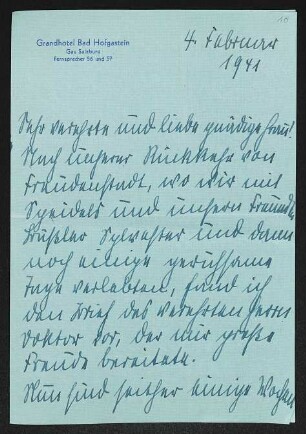 10
Grandhotel Bad Hofgastein
Gau Salzburg
Fernsprecher 56 und 57
4. Februar
1941
Sehr verehrte und liebe gnädige Frau!
Nach unserer Rückkehr von
Freudenstadt, wo wir mit
Speidels und unsern Freunden
Sylvester und dann
noch einige
Tage verlebten, fand ich
den Brief des verehrten Herrn
Doktor vor, der mir große
Freude bereitete.
Nun sind seither einige Wochen